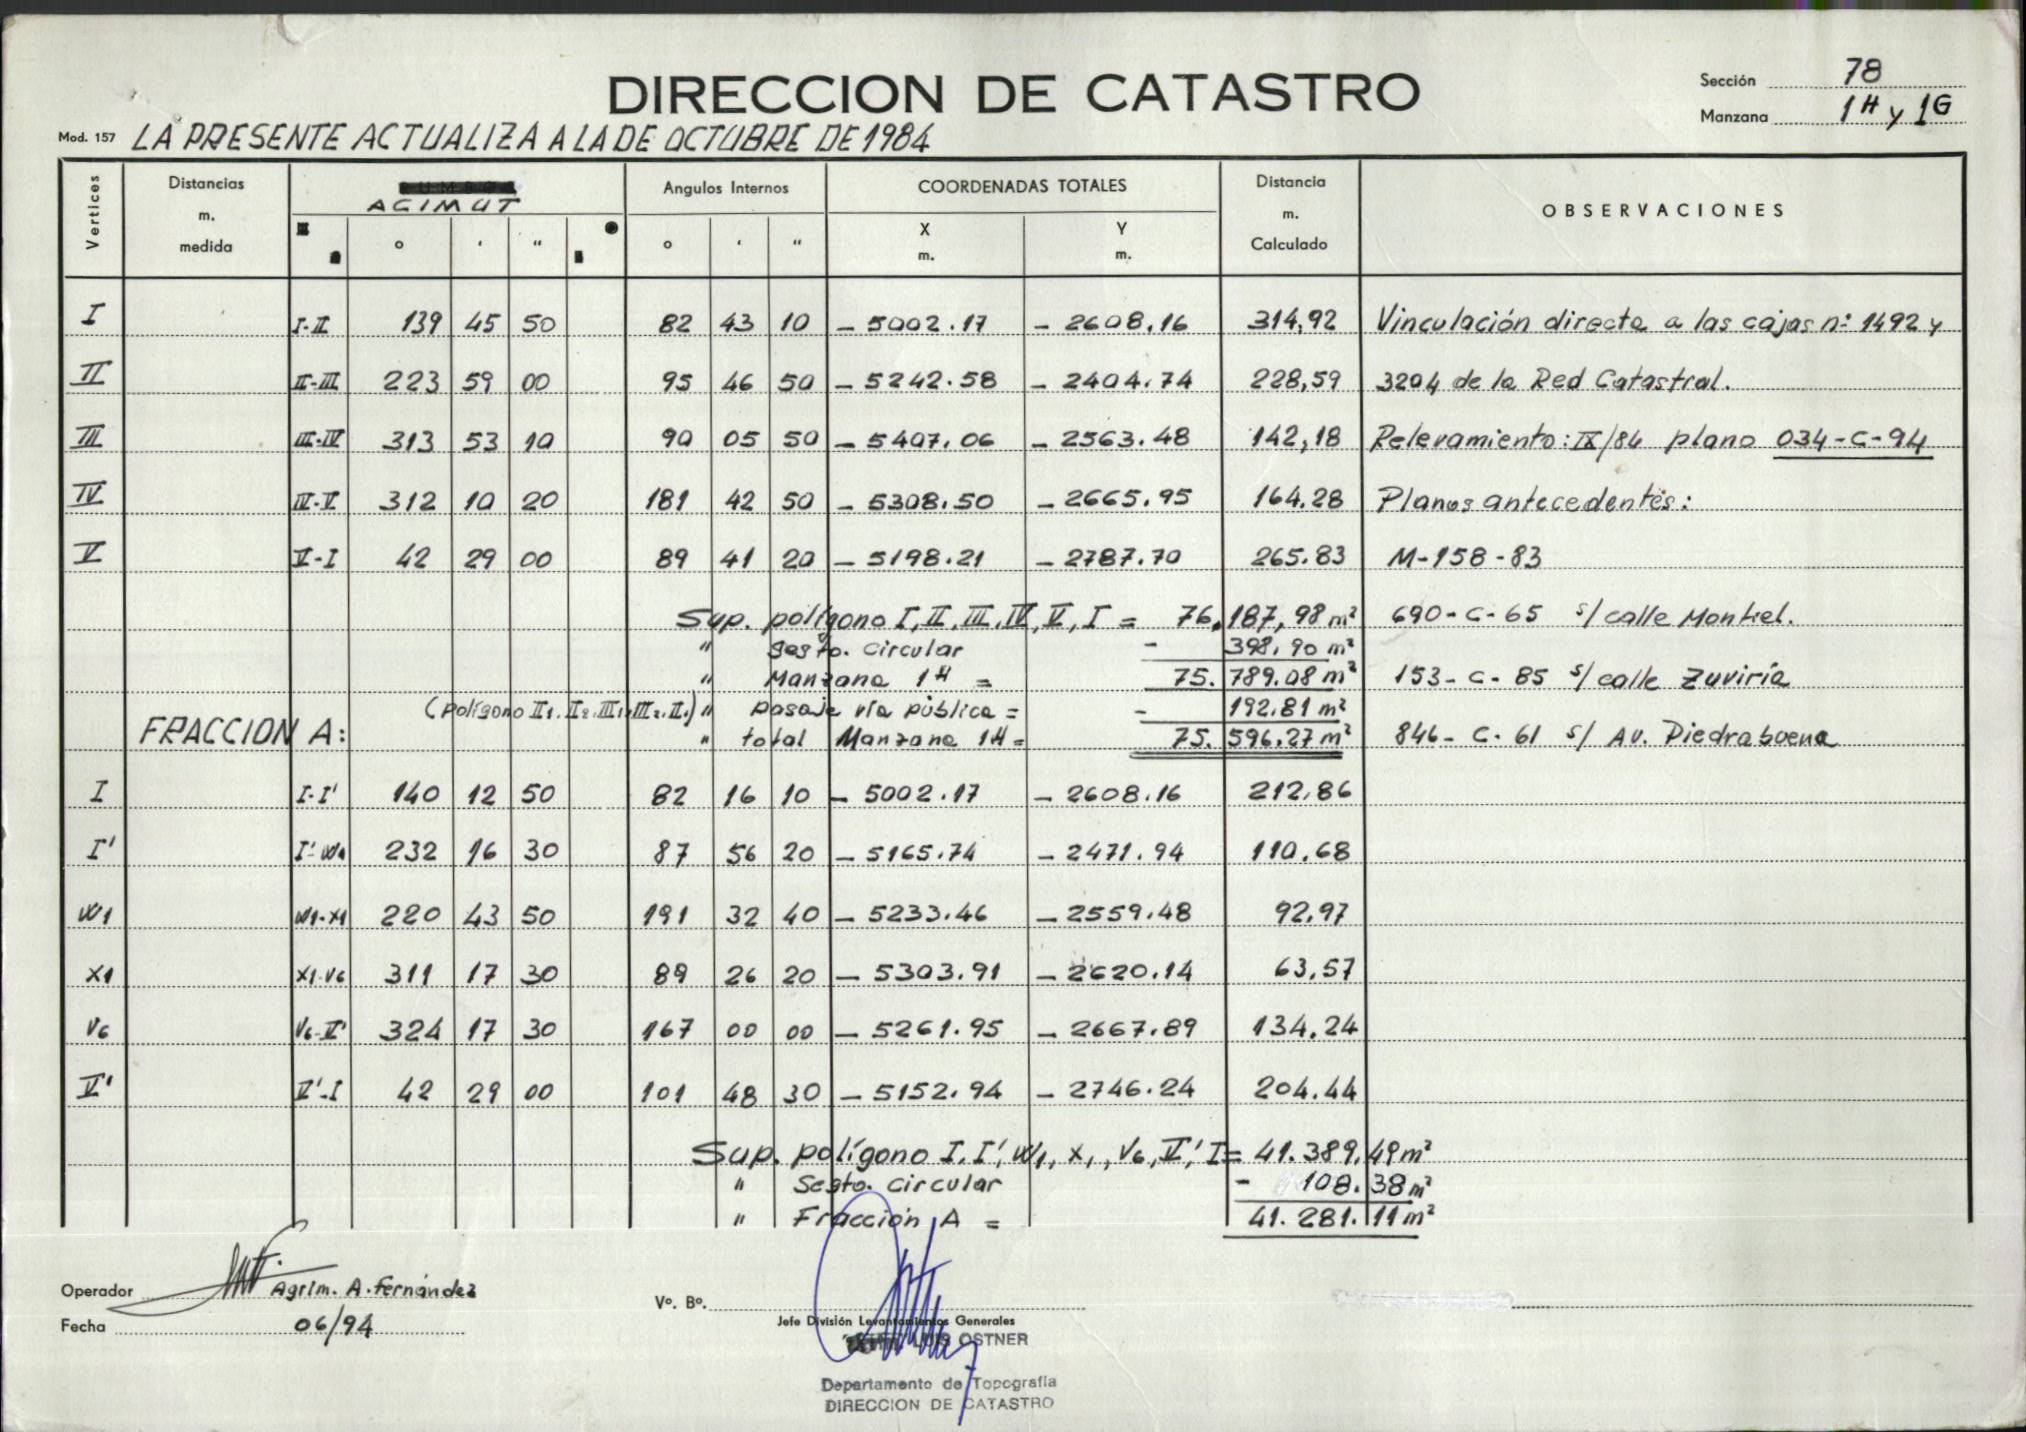 DIRECCION DE CATASTRO
Sección 78
Manzana 1H y 1G
Mod. 157 LA PRESENTE ACTUALIZA A LA DE OCTUBRE DE 1984
Vertices Distancias m. medida ACIMUT ° ' " Angulos Internos ° ' " COORDENADAS TOTALES X m. Y m. Distancia m. Calculado OBSERVACIONES
I I-II 139 45 50 82 43 10 - 5002.17 - 2608,16 314,92 Vinculación directa a las cajas nº 1492 y
II II-III 223 59 00 95 46 50 - 5242.58 - 2404.74 228,59 3204 de la Red Catastral.
III III-IV 313 53 10 90 05 50 - 5407.06 - 2563.48 142,18 Relevamiento: IX/84 plano 034-C-94
IV IV-V 312 10 20 181 42 50 - 5308.50 - 2665.95 164.28 Planos antecedentes:
V V-I 42 29 00 89 41 20 - 5198.21 - 2787.70 265.83 M-158-83
Sup. polígono I, II, III, IV, V, I = 76.187,98 m² 690-C-65 s/ calle Montiel.
" Segto. circular - 398.90 m²
" Manzana 1H = 75.789.08 m² 153-C-85 s/ calle Zuviría
(polígono II1. II2. III1. III2. II1) " pasaje vía pública = - 192.81 m²
FRACCION A: " total Manzana 1H = 75.596.27 m² 846-C-61 s/ Av. Piedrabuena
I I-I' 140 12 50 82 16 10 - 5002.17 - 2608.16 212.86
I' I'-W1 232 16 30 87 56 20 - 5165.74 - 2471.94 110.68
W1 W1-X1 220 43 50 191 32 40 - 5233.46 - 2559.48 92.97
X1 X1-V6 311 17 30 89 26 20 - 5303.91 - 2620.14 63.57
V6 V6-V' 324 17 30 167 00 00 - 5261.95 - 2667.89 134.24
V' V'-I 42 29 00 101 48 30 - 5152.94 - 2746.24 204.44
Sup. polígono I, I', W1, X1, V6, V', I = 41.389,49 m²
" Segto. circular - 108.38 m²
" Fracción A = 41.281.11 m²
Operador Agrim. A. Fernández
Fecha 06/94
Vº. Bº.
Jefe División Levantamientos Generales
LUIS OSTNER
Departamento de Topografía
DIRECCION DE CATASTRO